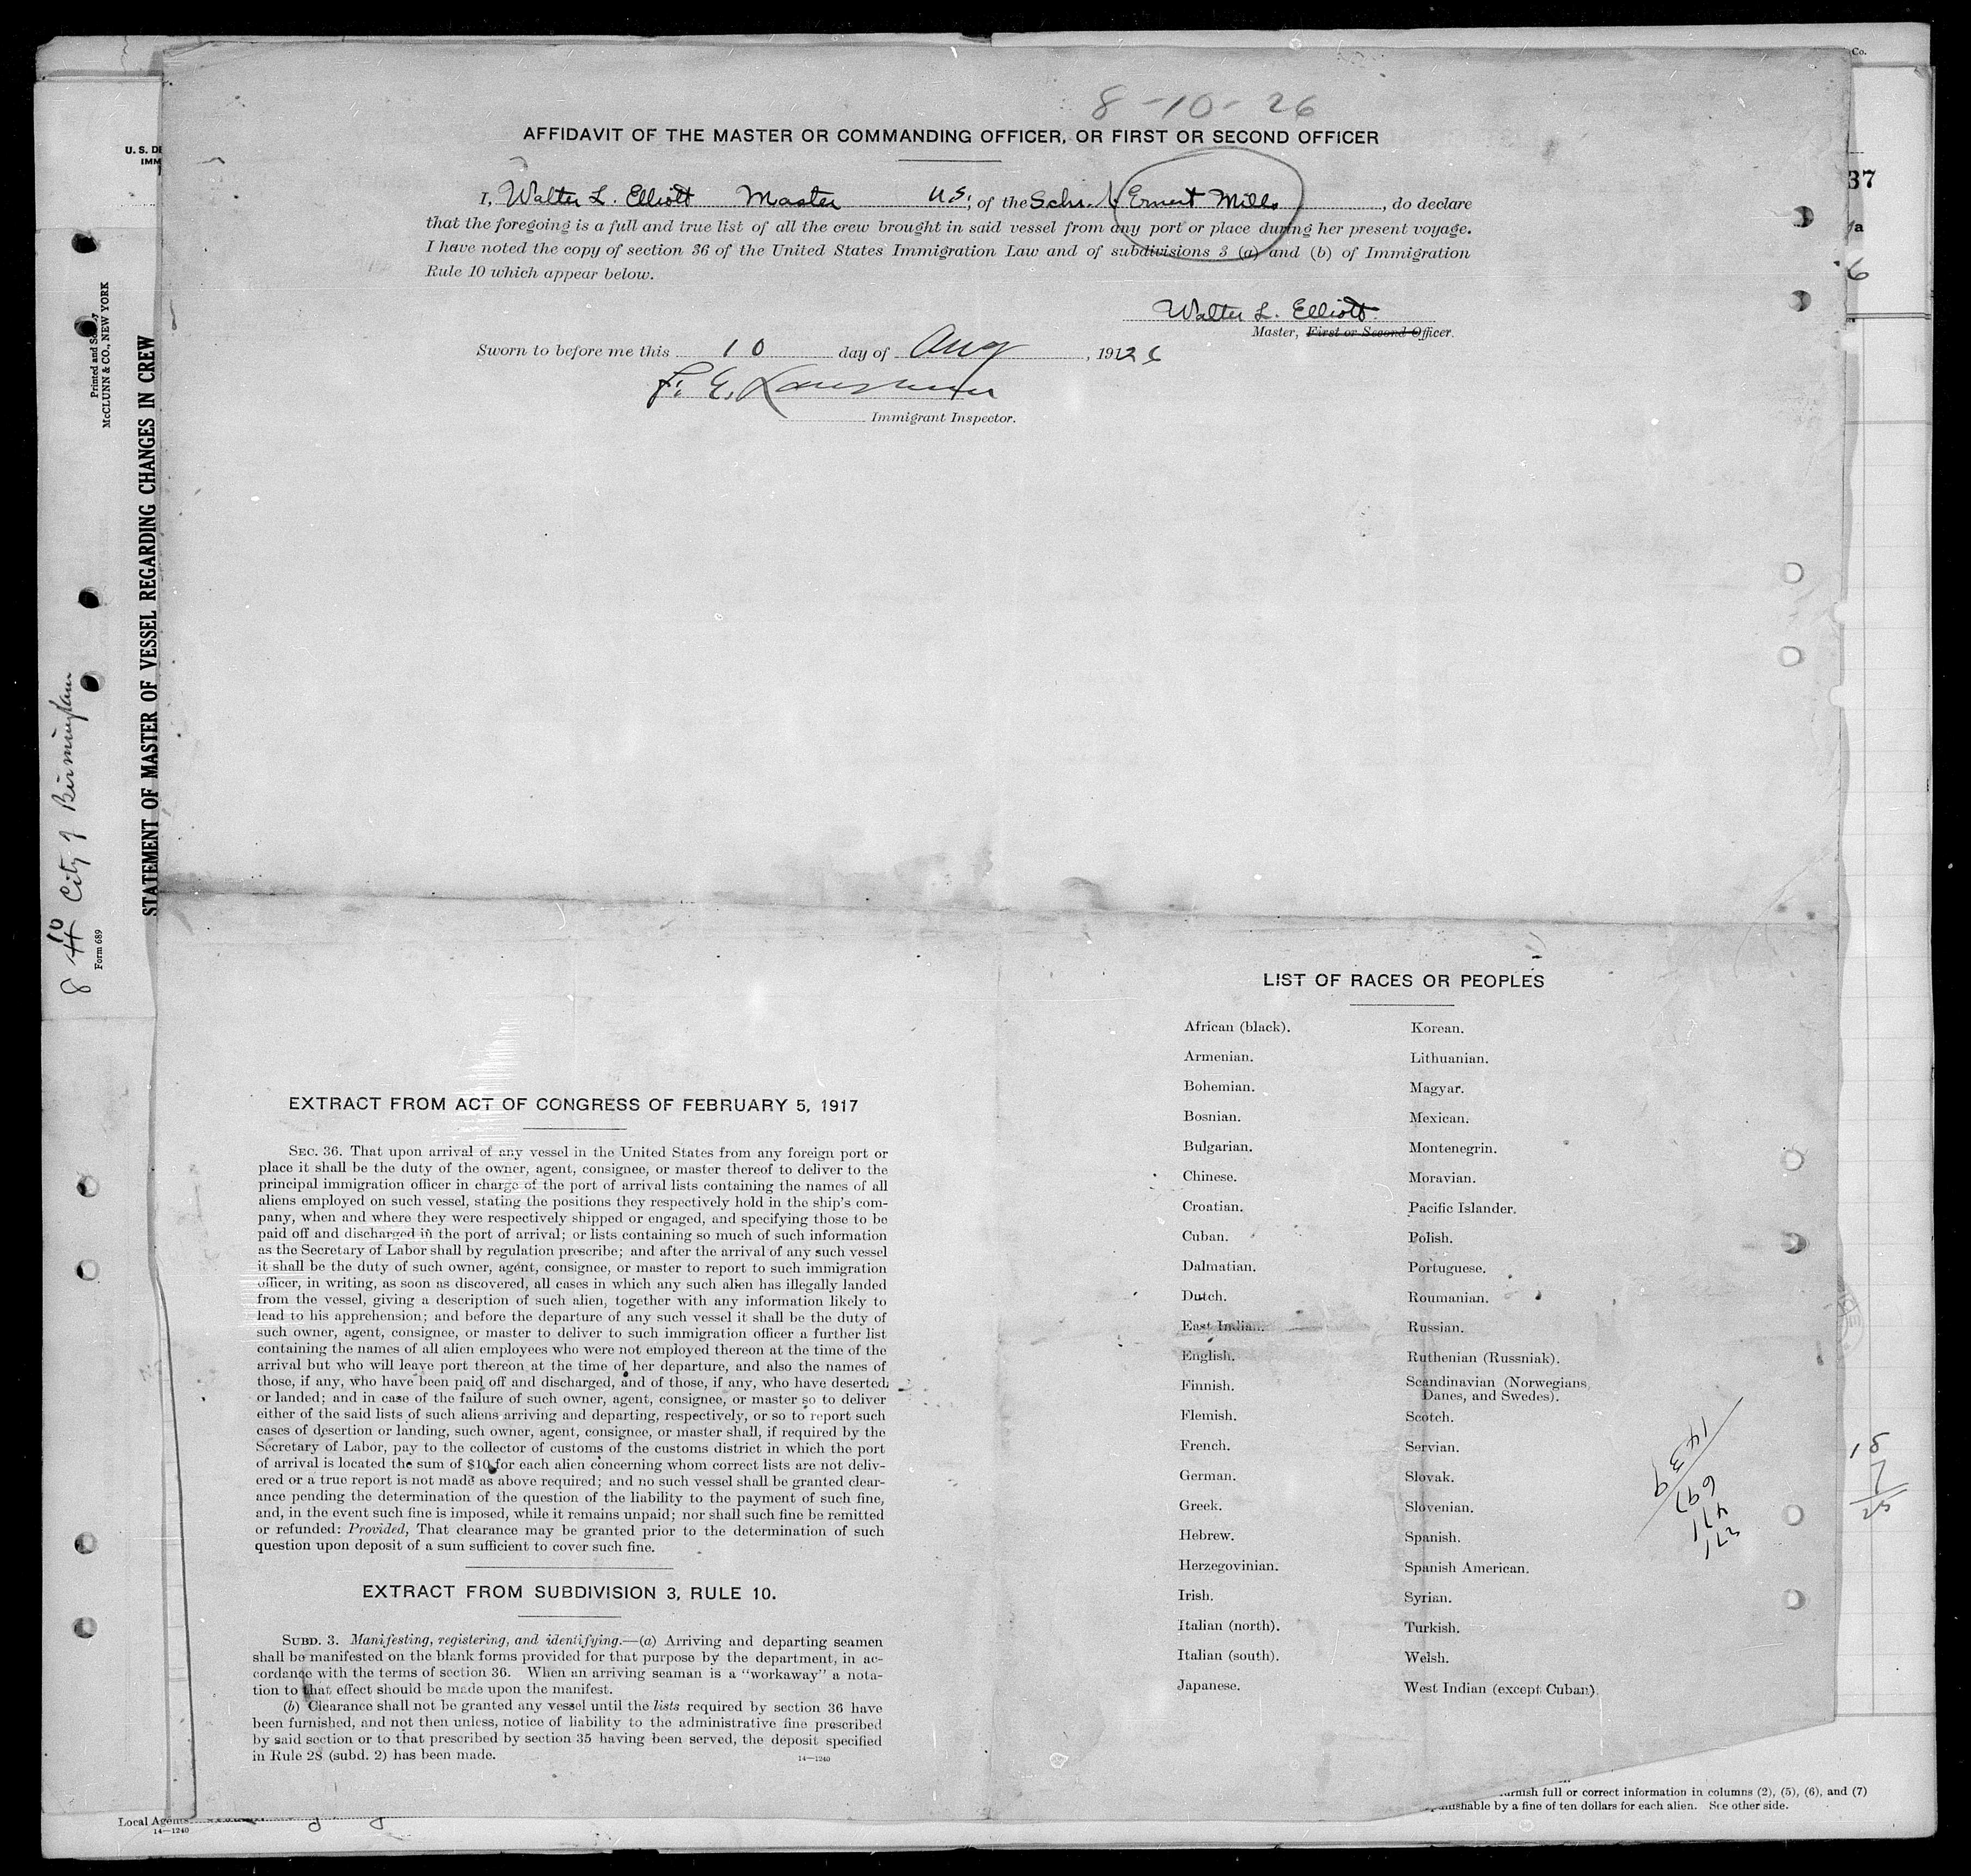 8-10-26
AFFIDAVIT OF THE MASTER OR COMMANDING OFFICER, OR FIRST OR SECOND OFFICER
I, Walter L. Elliott Master U.S; of the Schr. Ernest Mills, do declare
that the foregoing is a full and true list of all the crew brought in said vessel from any port or place during her present voyage.
I have noted the copy of section 36 of the United States Immigration Law and of subdivisions 3 (a) and (b) of Immigration
Rule 10 which appear below.
Walter L. Elliott
Master, First or Second Officer.
Sworn to before me this 10 day of Aug, 1926
Immigrant Inspector.
EXTRACT FROM ACT OF CONGRESS OF FEBRUARY 5, 1917
SEC. 36. That upon arrival of any vessel in the United States from any foreign port or
place it shall be the duty of the owner, agent, consignee, or master thereof to deliver to the
principal immigration officer in charge of the port of arrival lists containing the names of all
aliens employed on such vessel, stating the positions they respectively hold in the ship's com-
pany, when and where they were respectively shipped or engaged, and specifying those to be
paid off and discharged in the port of arrival; or lists containing so much of such information
as the Secretary of Labor shall by regulation prescribe; and after the arrival of any such vessel
it shall be the duty of such owner, agent, consignee, or master to report to such immigration
officer, in writing, as soon as discovered, all cases in which any such alien has illegally landed
from the vessel, giving a description of such alien, together with any information likely to
lead to his apprehension; and before the departure of any such vessel it shall be the duty of
such owner, agent, consignee, or master to deliver to such immigration officer a further list
containing the names of all alien employees who were not employed thereon at the time of the
arrival but who will leave port thereon at the time of her departure, and also the names of
those, if any, who have been paid off and discharged, and of those, if any, who have deserted
or landed; and in case of the failure of such owner, agent, consignee, or master so to deliver
either of the said lists of such aliens arriving and departing, respectively, or so to report such
cases of desertion or landing, such owner, agent, consignee, or master shall, if required by the
Secretary of Labor, pay to the collector of customs of the customs district in which the port
of arrival is located the sum of $10 for each alien concerning whom correct lists are not deliv-
ered or a true report is not made as above required; and no such vessel shall be granted clear-
ance pending the determination of the question of the liability to the payment of such fine,
and, in the event such fine is imposed, while it remains unpaid; nor shall such fine be remitted
or refunded: Provided, That clearance may be granted prior to the determination of such
question upon deposit of a sum sufficient to cover such fine.
EXTRACT FROM SUBDIVISION 3, RULE 10.
SUBD. 3. Manifesting, registering, and identifying.—(a) Arriving and departing seamen
shall be manifested on the blank forms provided for that purpose by the department, in ac-
cordance with the terms of section 36. When an arriving seaman is a "workaway" a nota-
tion to that effect should be made upon the manifest.
(b) Clearance shall not be granted any vessel until the lists required by section 36 have
been furnished, and not then unless, notice of liability to the administrative fine prescribed
by said section or to that prescribed by section 35 having been served, the deposit specified
in Rule 28 (subd. 2) has been made.
14—1240
LIST OF RACES OR PEOPLES
African (black).
Armenian.
Bohemian.
Bosnian.
Bulgarian.
Chinese.
Croatian.
Cuban.
Dalmatian.
Dutch.
East India
English.
Finnish.
Flemish.
French.
German.
Greek.
Hebrew.
Herzegovinian.
Irish.
Italian (north).
Italian (south).
Japanese.
Korean.
Lithuanian.
Magyar.
Mexican.
Montenegrin.
Moravian.
Pacific Islander.
Polish.
Portuguese.
Roumanian.
Russian.
Ruthenian (Russniak).
Scandinavian (Norwegians,
Danes, and Swedes).
Scotch.
Servian.
Slovak.
Slovenian.
Spanish.
Spanish American.
Syrian.
Turkish.
Welsh.
West Indian (except Cuban).
271
471
697
1439
18
7
25
U. S. DE
IMM
Printed and Sold by
McCLUNN & CO., NEW YORK
STATEMENT OF MASTER OF VESSEL REGARDING CHANGES IN CREW
8 10 City of Birmingham
Form 689
Local Agents
14—1240
Co.
37
6
urnish full or correct information in columns (2), (5), (6), and (7)
punishable by a fine of ten dollars for each alien. See other side.